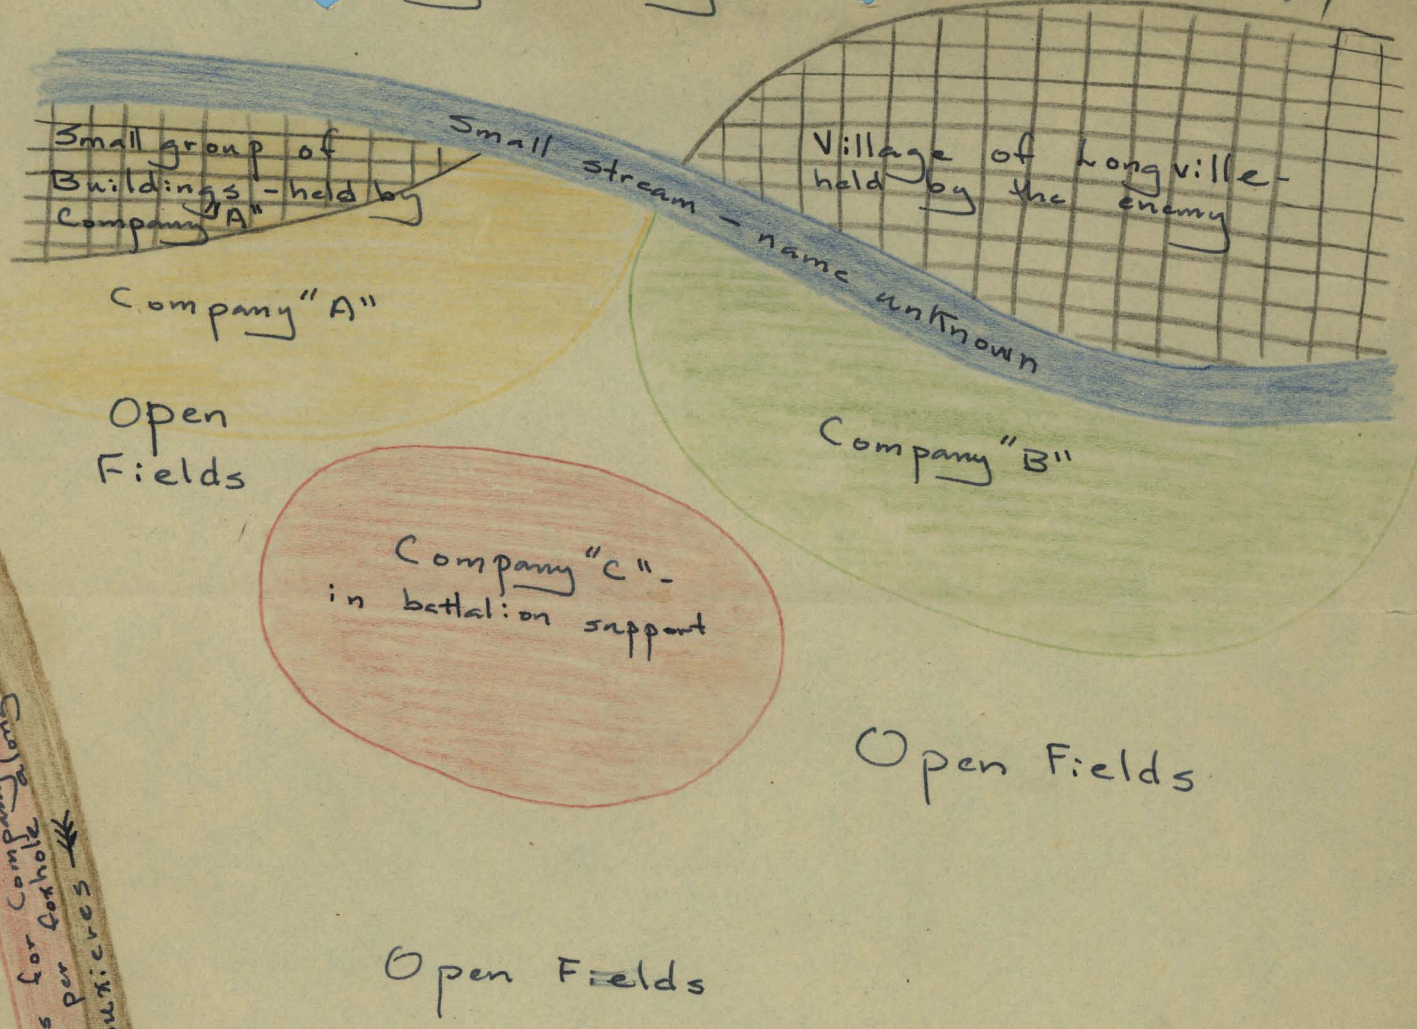 Small group of
Buildings - held by
Company "A"
Small stream - name unknown
Village of Longville -
held by the enemy
Company "A"
Open
Fields
Company "B"
Company "C" -
in battalion support
Open Fields
Open Fields
for Company along
per foxhole